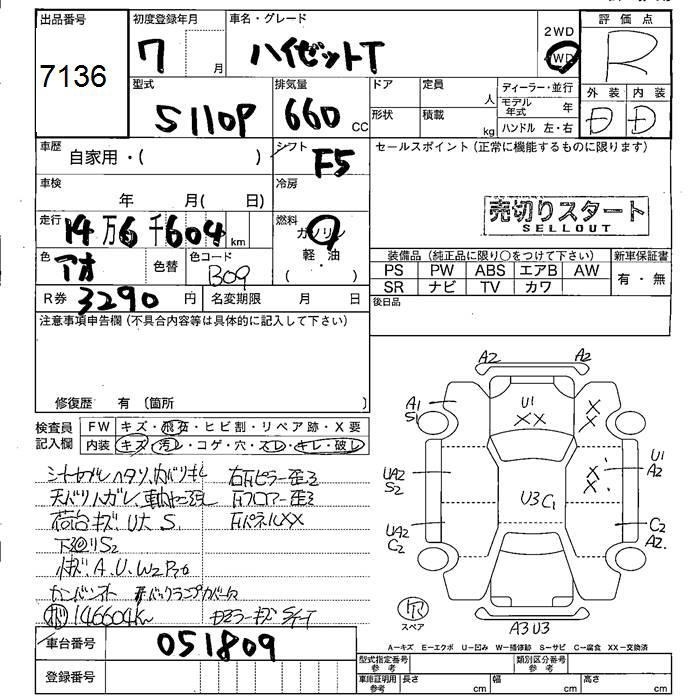 出品番号
7136
初度登録年月
7 月
車名・グレード
ハイゼットT
2WD
4WD
評価点
R
外装 内装
D D
型式
S110P
排気量
660 CC
ドア
形状
定員 人
積載 kg
ディーラー・並行
モデル年式 年
ハンドル 左・右
車歴
自家用・( )
シフト
F5
セールスポイント(正常に機能するものに限ります)
売切りスタート
SELLOUT
車検
年 月( 日)
冷房
走行
14万6千604 km
燃料
ガソリン
軽・油
( )
色
アオ
色替
色コード
B09
R券 3290 円
名変期限 月 日
装備品(純正品に限り○をつけて下さい)
PS PW ABS エアB AW
SR ナビ TV カワ
新車保証書
有・無
後日品
注意事項申告欄(不具合内容等は具体的に記入して下さい)
修復歴 有 〔箇所 〕
検査員
記入欄
FW キズ・飛石・ヒビ割・リペア跡・X要
内装 キズ・汚レ・コゲ・穴・スレ・キレ・破レ
右Fピラー歪ミ
Fフロアー歪ミ
荷台キズ U大 S
FパネルXX
下廻りS2
146604km
A2 A2
A1
S1
U1
XX
X
X
U1
A2
X
X
UA2
S2
U3 C1
UA2
C2
C2
A2
スペア
A3U3
A−キズ E−エクボ U−凹み W−補修跡 S−サビ C−腐食 XX−交換済
車台番号
051809
登録番号
型式指定番号
参考
類別区分番号
参考
車庫証明用
参考
長さ cm
幅 cm
高さ cm